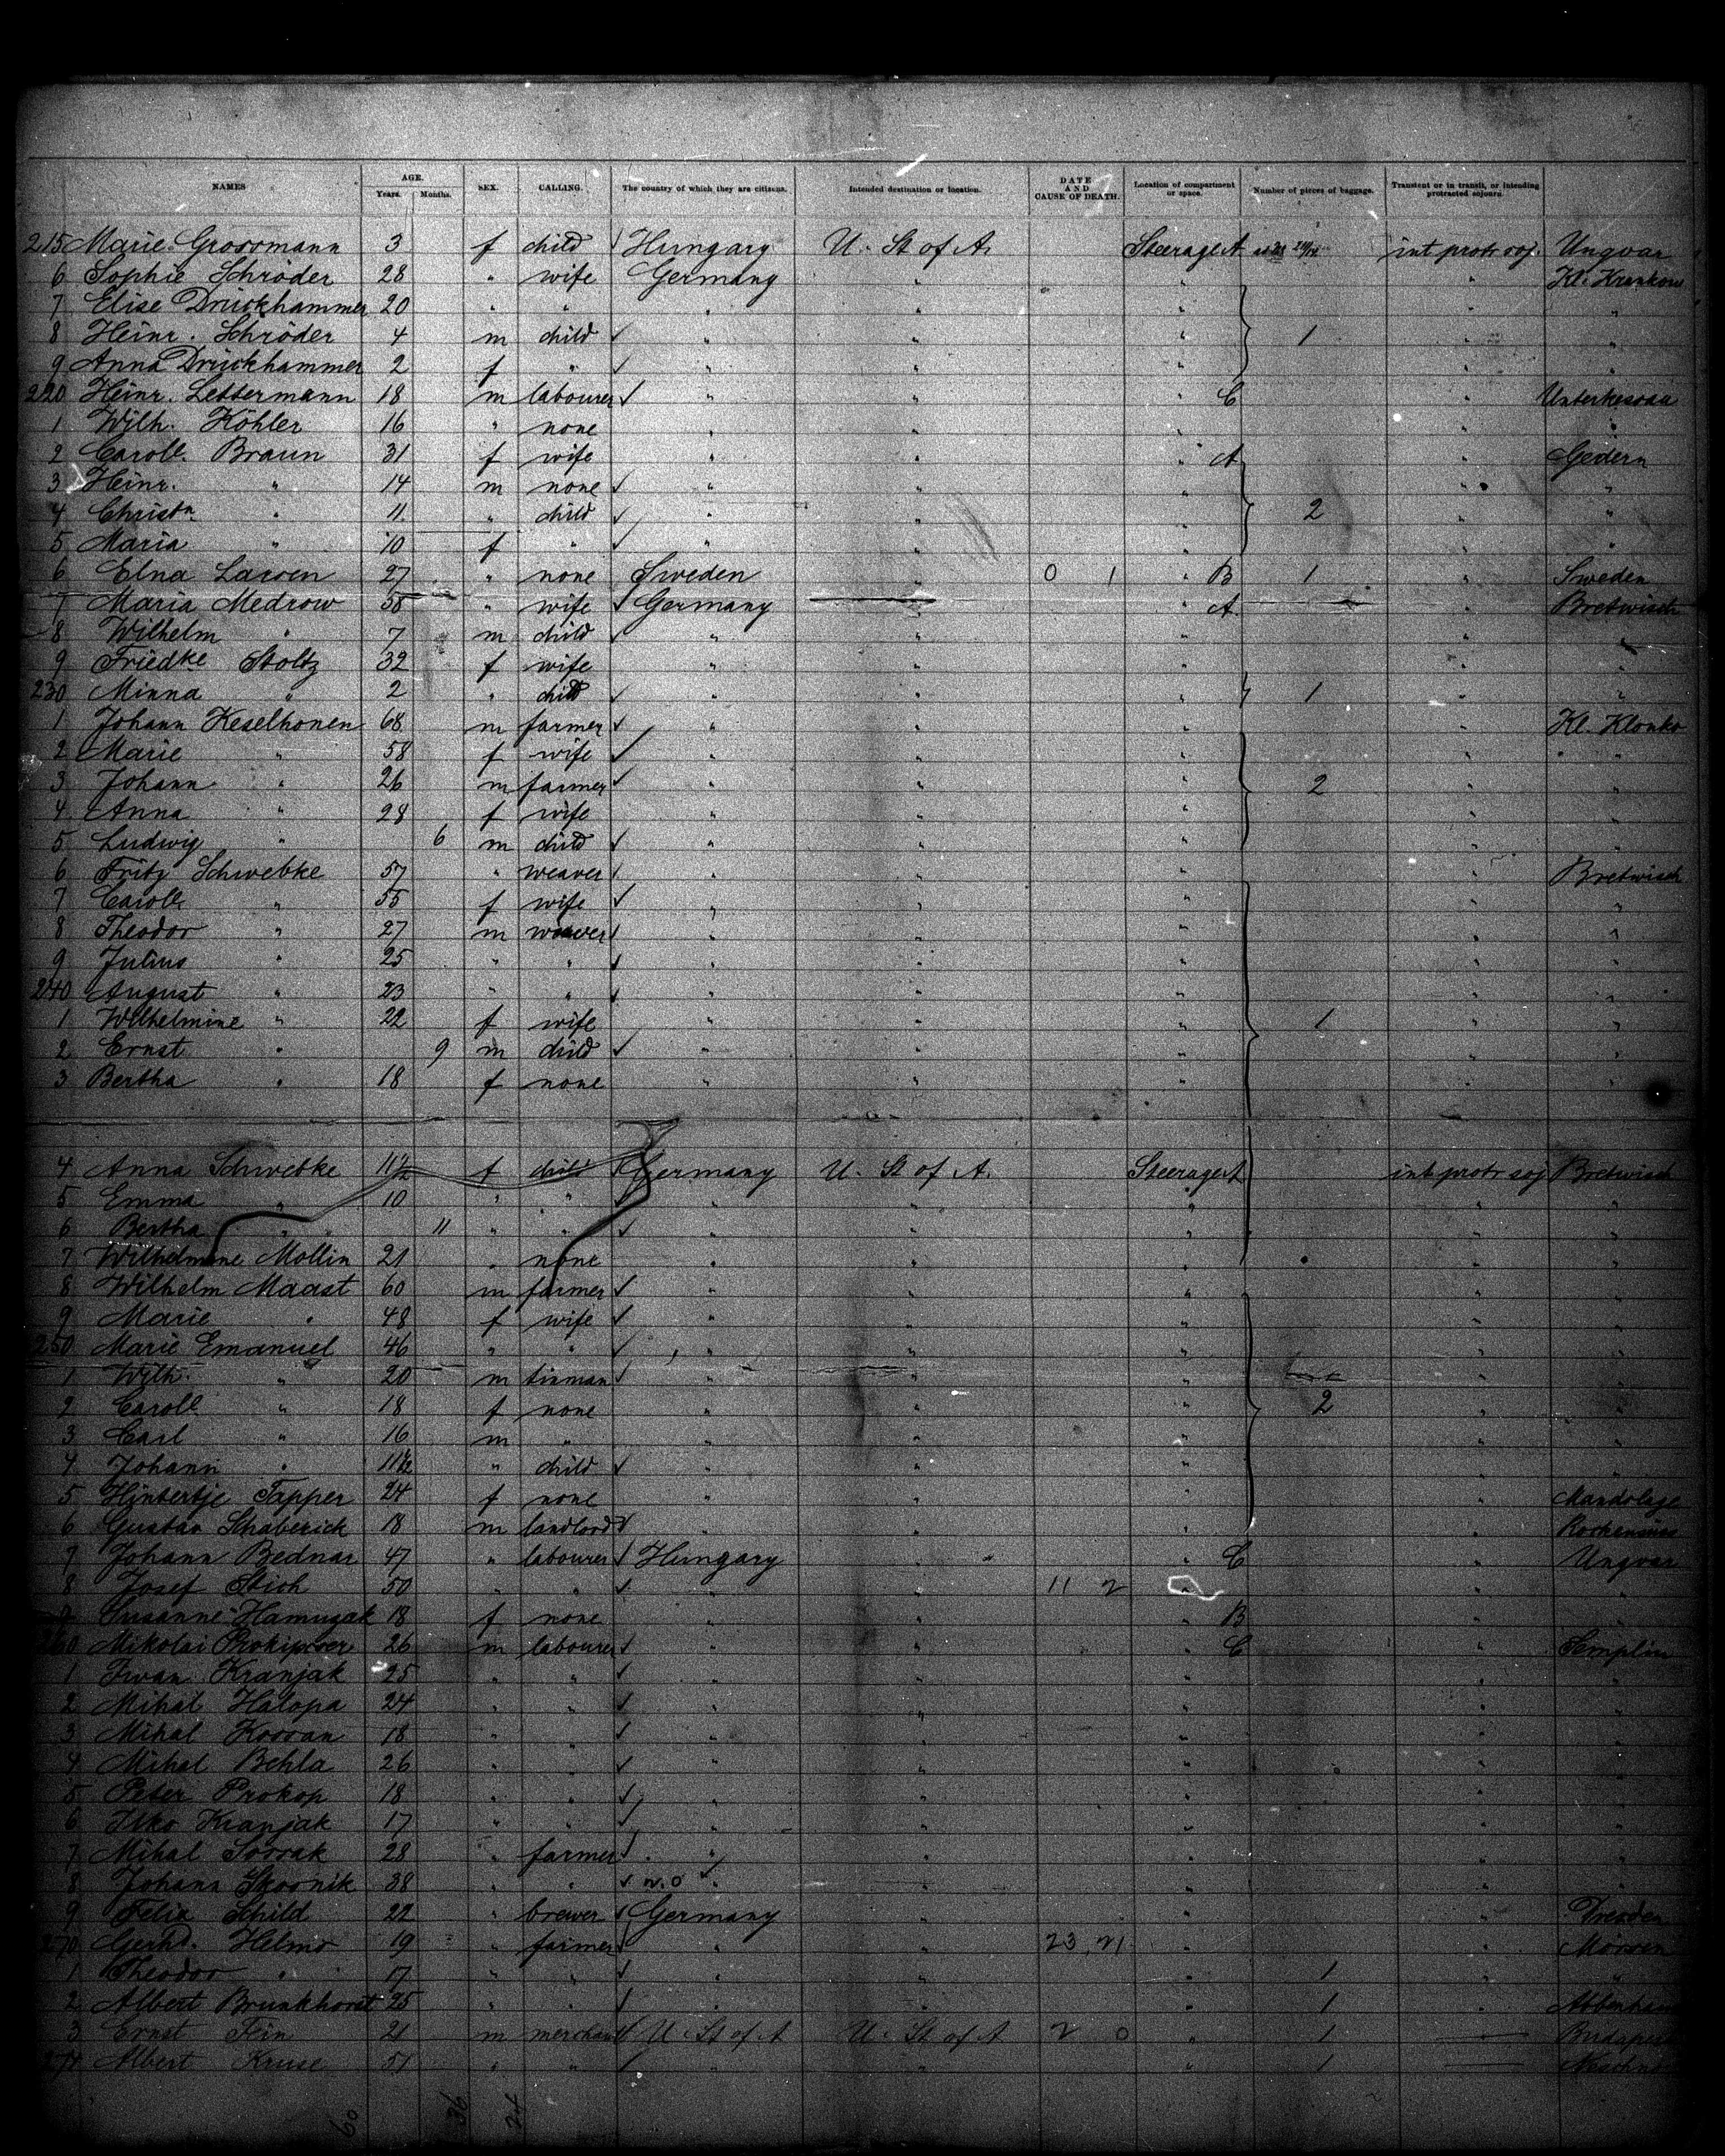 NAMES AGE. Years. Months. SEX. CALLING. The country of which they are citizens. Intended destination or location. DATE AND CAUSE OF DEATH. Location of compartment or space. Number of pieces of baggage. Transient or in transit, or intending protracted sojourn.
215 Marie Grossmann 3 f child Hungary U. St of A. Steerage A int protr soj. Ungvar
6 Sophie Schröder 28 " wife Germany " " " Kl. Krankow
7 Elise Drückhammer 20 " " " " " "
8 Heinr. Schröder 4 m child " " " 1 " "
9 Anna Drückhammer 2 f " " " " " "
220 Heinr. Lettermann 18 m labourer " " C "
1 Wilh. Köhler 16 " none " " " "
2 Carole. Braun 31 f wife " " " A " Gedern
3 Heinr. " 14 m none " " " " "
4 Christn. " 11 " child " " " 2 " "
5 Maria " 10 f " " " " " "
6 Elna Larsen 27 " none Sweden " 0 1 " B 1 " Sweden
7 Maria Medrow 58 " wife Germany " A Bretwisch
8 Wilhelm " 7 m child " " " " "
9 Friedke Stoltz 32 f wife " " " " "
230 Minna " 2 " child " " " 1 " "
1 Johann Keselhonen 68 m farmer " " " " Kl. Klonko
2 Marie " 58 f wife " " " " "
3 Johann " 26 m farmer " " " 2 " "
4 Anna " 28 f wife " " " " "
5 Ludwig " 6 m child " " " " "
6 Fritz Schwebke 57 " weaver " " " " Bretwisch
7 Carole " 55 f wife " " " " "
8 Theodor " 27 m weaver " " " " "
9 Julius " 25 " " " " " " "
240 August " 23 " " " " " " "
1 Wilhelmine " 22 f wife " " " 1 " "
2 Ernst " 9 m child " " " " "
3 Bertha " 18 f none " " " " "
4 Anna Schwebke 11½ f child Germany U. St of A. Steerage A int protr soj Bretwisch
5 Emma " 10 " " " " " " "
6 Bertha " 11 " " " " " " "
7 Wilhelmine Mollin 21 " none " " " " "
8 Wilhelm Maast 60 m farmer " " " " "
9 Marie " 48 f wife " " " " "
250 Marie Emanuel 46 " " " " " " "
1 Wilh. " 20 m tinman " " " " "
2 Carole " 18 f none " " " 2 " "
3 Carl " 16 m " " " " " "
4 Johann " 11½ " child " " " " "
5 Hintertje Tapper 24 f none " " " "
6 Gustav Schaberick 18 m landlord " " " "
7 Johann Bednar 47 " labourer Hungary " " C " Ungvar
8 Josef Stich 50 " " " " 11 2 " " "
9 Susanne Hamuzak 18 f none " " " B " "
260 Mikolai 26 m labourer " " " C " Semplin
1 Iwan Kranjak 25 " " " " " " "
2 Mihal Halopa 24 " " " " " " "
3 Mihal Kossan 18 " " " " " " "
4 Mihal Behla 26 " " " " " " "
5 Peter Prokop 18 " " " " " " "
6 Ilko Kranjak 17 " " " " " " "
7 Mihal Sorrak 28 " farmer " " " " "
8 Johann Skosnik 38 " " n.o " " " " "
9 Felix Schild 22 " brewer Germany " " " Dresden
270 Gerhd. Helms 19 " farmer " " 23 21 " "
1 Theodor " 17 " " " " " 1 " "
2 Albert Brunkhorst 25 " " " " " 1 "
3 Ernst Fein 21 m merchant U. St of A U. St of A 2 0 " 1 — Budapest
274 Albert Kruse 51 " " " 1 —
60 36 24